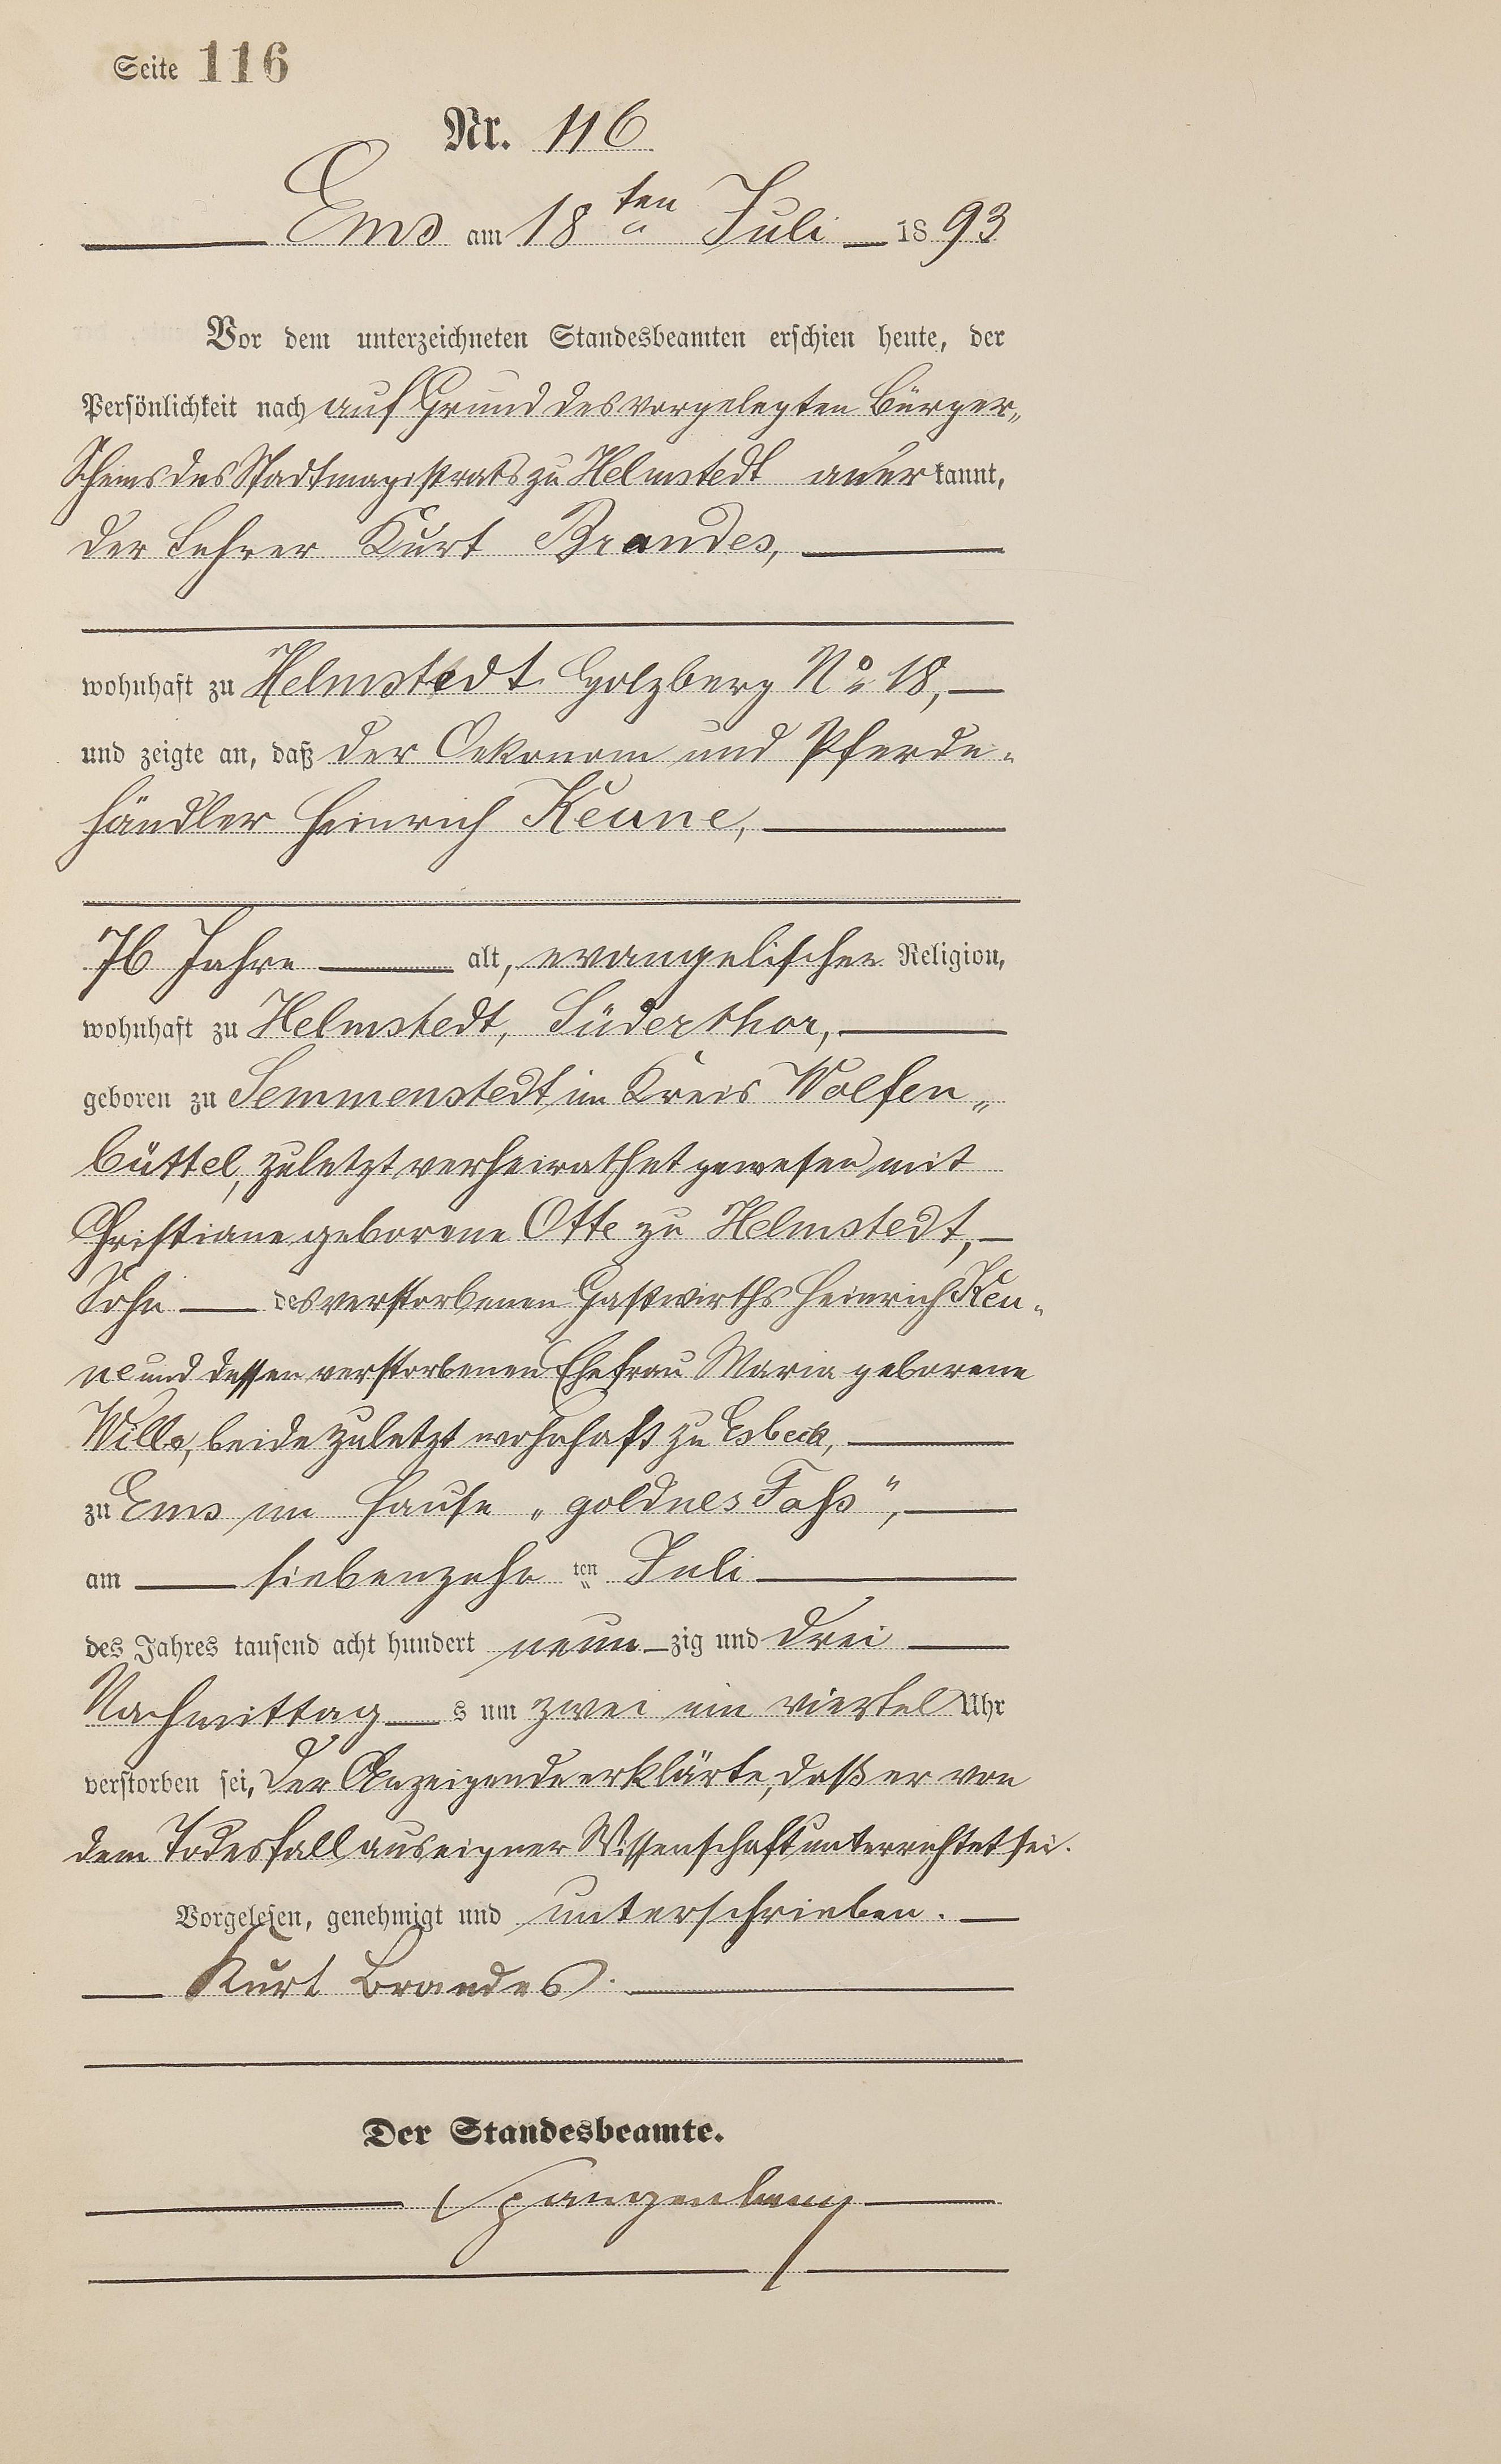 Seite 116
Nr. 116
Ems am 18ten Juli 1893
Vor dem unterzeichneten Standesbeamten erschien heute, der
Persönlichkeit nach auf Grund des vorgelegten Bürger„
Scheins des Stadtmagistrats zu Helmstedt anerkannt,
der Lehrer Kurt Brandes,
wohnhaft zu Helmstedt Holzberg No 18,
und zeigte an, daß der Oekonom und Pferde„
händler Heinrich Keune,
76 Jahre alt, evangelischer Religion,
wohnhaft zu Helmstedt, Süderthor,
geboren zu Semmenstedt im Kreis Wolfen„
büttel, zuletzt verheirathet gewesen mit
Christiane geborene Otte zu Helmstedt,
Sohn des verstorbenen Gastwirths Heinrich Keu„
ne und dessen verstorbenen Ehefrau Maria geborene
Wille, beide zuletzt wohnhaft zu Esbeck,
zu Ems im Hause „goldnes Faß“,
am siebenzehnten Juli
des Jahres tausend acht hundert neunzig und drei
Nachmittags um zwei ein viertel Uhr
verstorben sei. Der Anzeigende erklärte, daß er von
dem Todesfall aus eigner Wissenschaft unterrichtet sei.
Vorgelesen, genehmigt und unterschrieben.
Kurt Brandes.
Der Standesbeamte.
Spangenberg